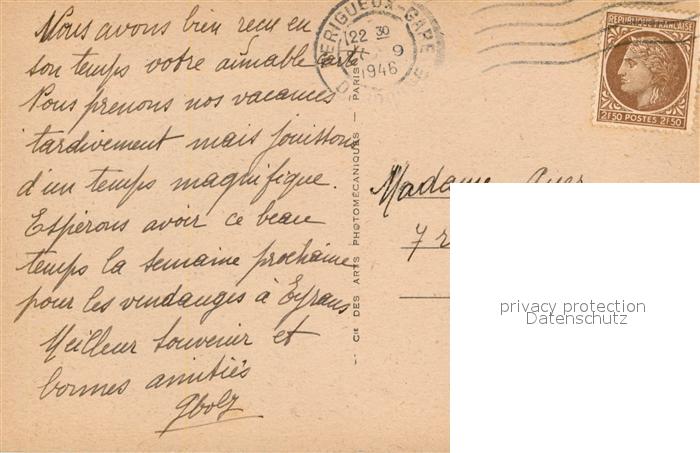 Nous avons bien reçu en
son temps votre aimable carte
Nous prenons nos vacances
tardivement mais jouissons
d'un temps magnifique.
Espérons avoir ce beau
temps la semaine prochaine
pour les vendanges à Eyrans
Meilleur souvenir et
bonnes amitiés
PERIGUEUX-GARE
22 30
9
1946
REPUBLIQUE FRANÇAISE
2F50 POSTES 2F50
- Cie DES ARTS PHOTOMÉCANIQUES - PARIS
Madame
7
privacy protection
Datenschutz